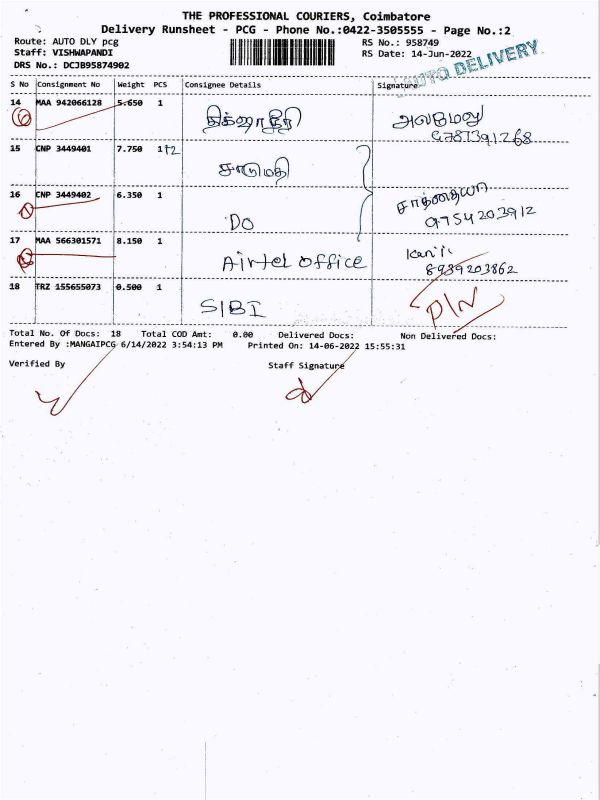 THE PROFESSIONAL COURIERS, Coimbatore
Delivery Runsheet - PCG - Phone No.:0422-3505555 - Page No.:2
Route: AUTO DLY pcg RS No.: 958749
Staff: VISHWAPANDI RS Date: 14-Jun-2022
DRS No.: DCJB95874902 AUTO DELIVERY
S No Consignment No Weight PCS Consignee Details Signature
14 MAA 942066128 5.650 1 அலமேலு
15 CNP 3449401 7.750 1+2 சாருமதி
16 CNP 3449402 6.350 1 DO
9754203912
17 MAA 566301571 8.150 1 Airtel office
8939203862
18 TRZ 155655073 0.500 1 SIBI
Total No. Of Docs: 18 Total COD Amt: 0.00 Delivered Docs: Non Delivered Docs:
Entered By :MANGAIPCG 6/14/2022 3:54:13 PM Printed On: 14-06-2022 15:55:31
Verified By Staff Signature